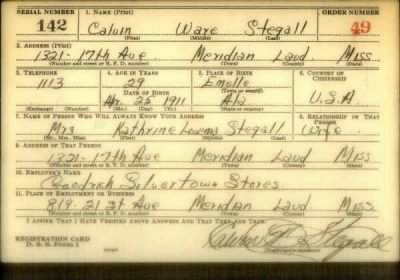 SERIAL NUMBER 1. NAME (Print) ORDER NUMBER
142 Calvin Ware Stegall 49
(First) (Middle) (Last)
2. ADDRESS (Print)
1321-17th Ave Meridian Laud Miss
(Number and street or R. F. D. number) (Town) (County) (State)
3. TELEPHONE 4. AGE IN YEARS 5. PLACE OF BIRTH 6. COUNTRY OF CITIZENSHIP
1113 29 Emelle
DATE OF BIRTH (Town or county)
Ap. 25 1911 Ala U.S.A
(Exchange) (Number) (Mo.) (Day) (Yr.) (State or country)
7. NAME OF PERSON WHO WILL ALWAYS KNOW YOUR ADDRESS 8. RELATIONSHIP OF THAT PERSON
Mrs Kathrine Lorena Stegall Wife
(Mr., Mrs., Miss) (First) (Middle) (Last)
9. ADDRESS OF THAT PERSON
1321-17th Ave Meridian Laud Miss
(Number and street or R. F. D. number) (Town) (County) (State)
10. EMPLOYER'S NAME
Goodrich Silvertown Stores
11. PLACE OF EMPLOYMENT OR BUSINESS
819-21 St Ave Meridian Laud Miss
(Number and street or R. F. D. number) (Town) (County) (State)
I AFFIRM THAT I HAVE VERIFIED ABOVE ANSWERS AND THAT THEY ARE TRUE.
REGISTRATION CARD
D. S. S. Form 1 Stegall